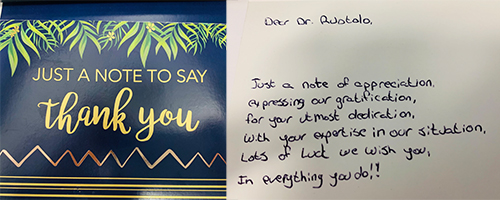 JUST A NOTE TO SAY
thank you
Dear Dr. Ruotolo,
Just a note of appreciation,
expressing our gratification,
for your utmost dedication,
with your expertise in our situation,
Lots of luck we wish you,
In everything you do!!